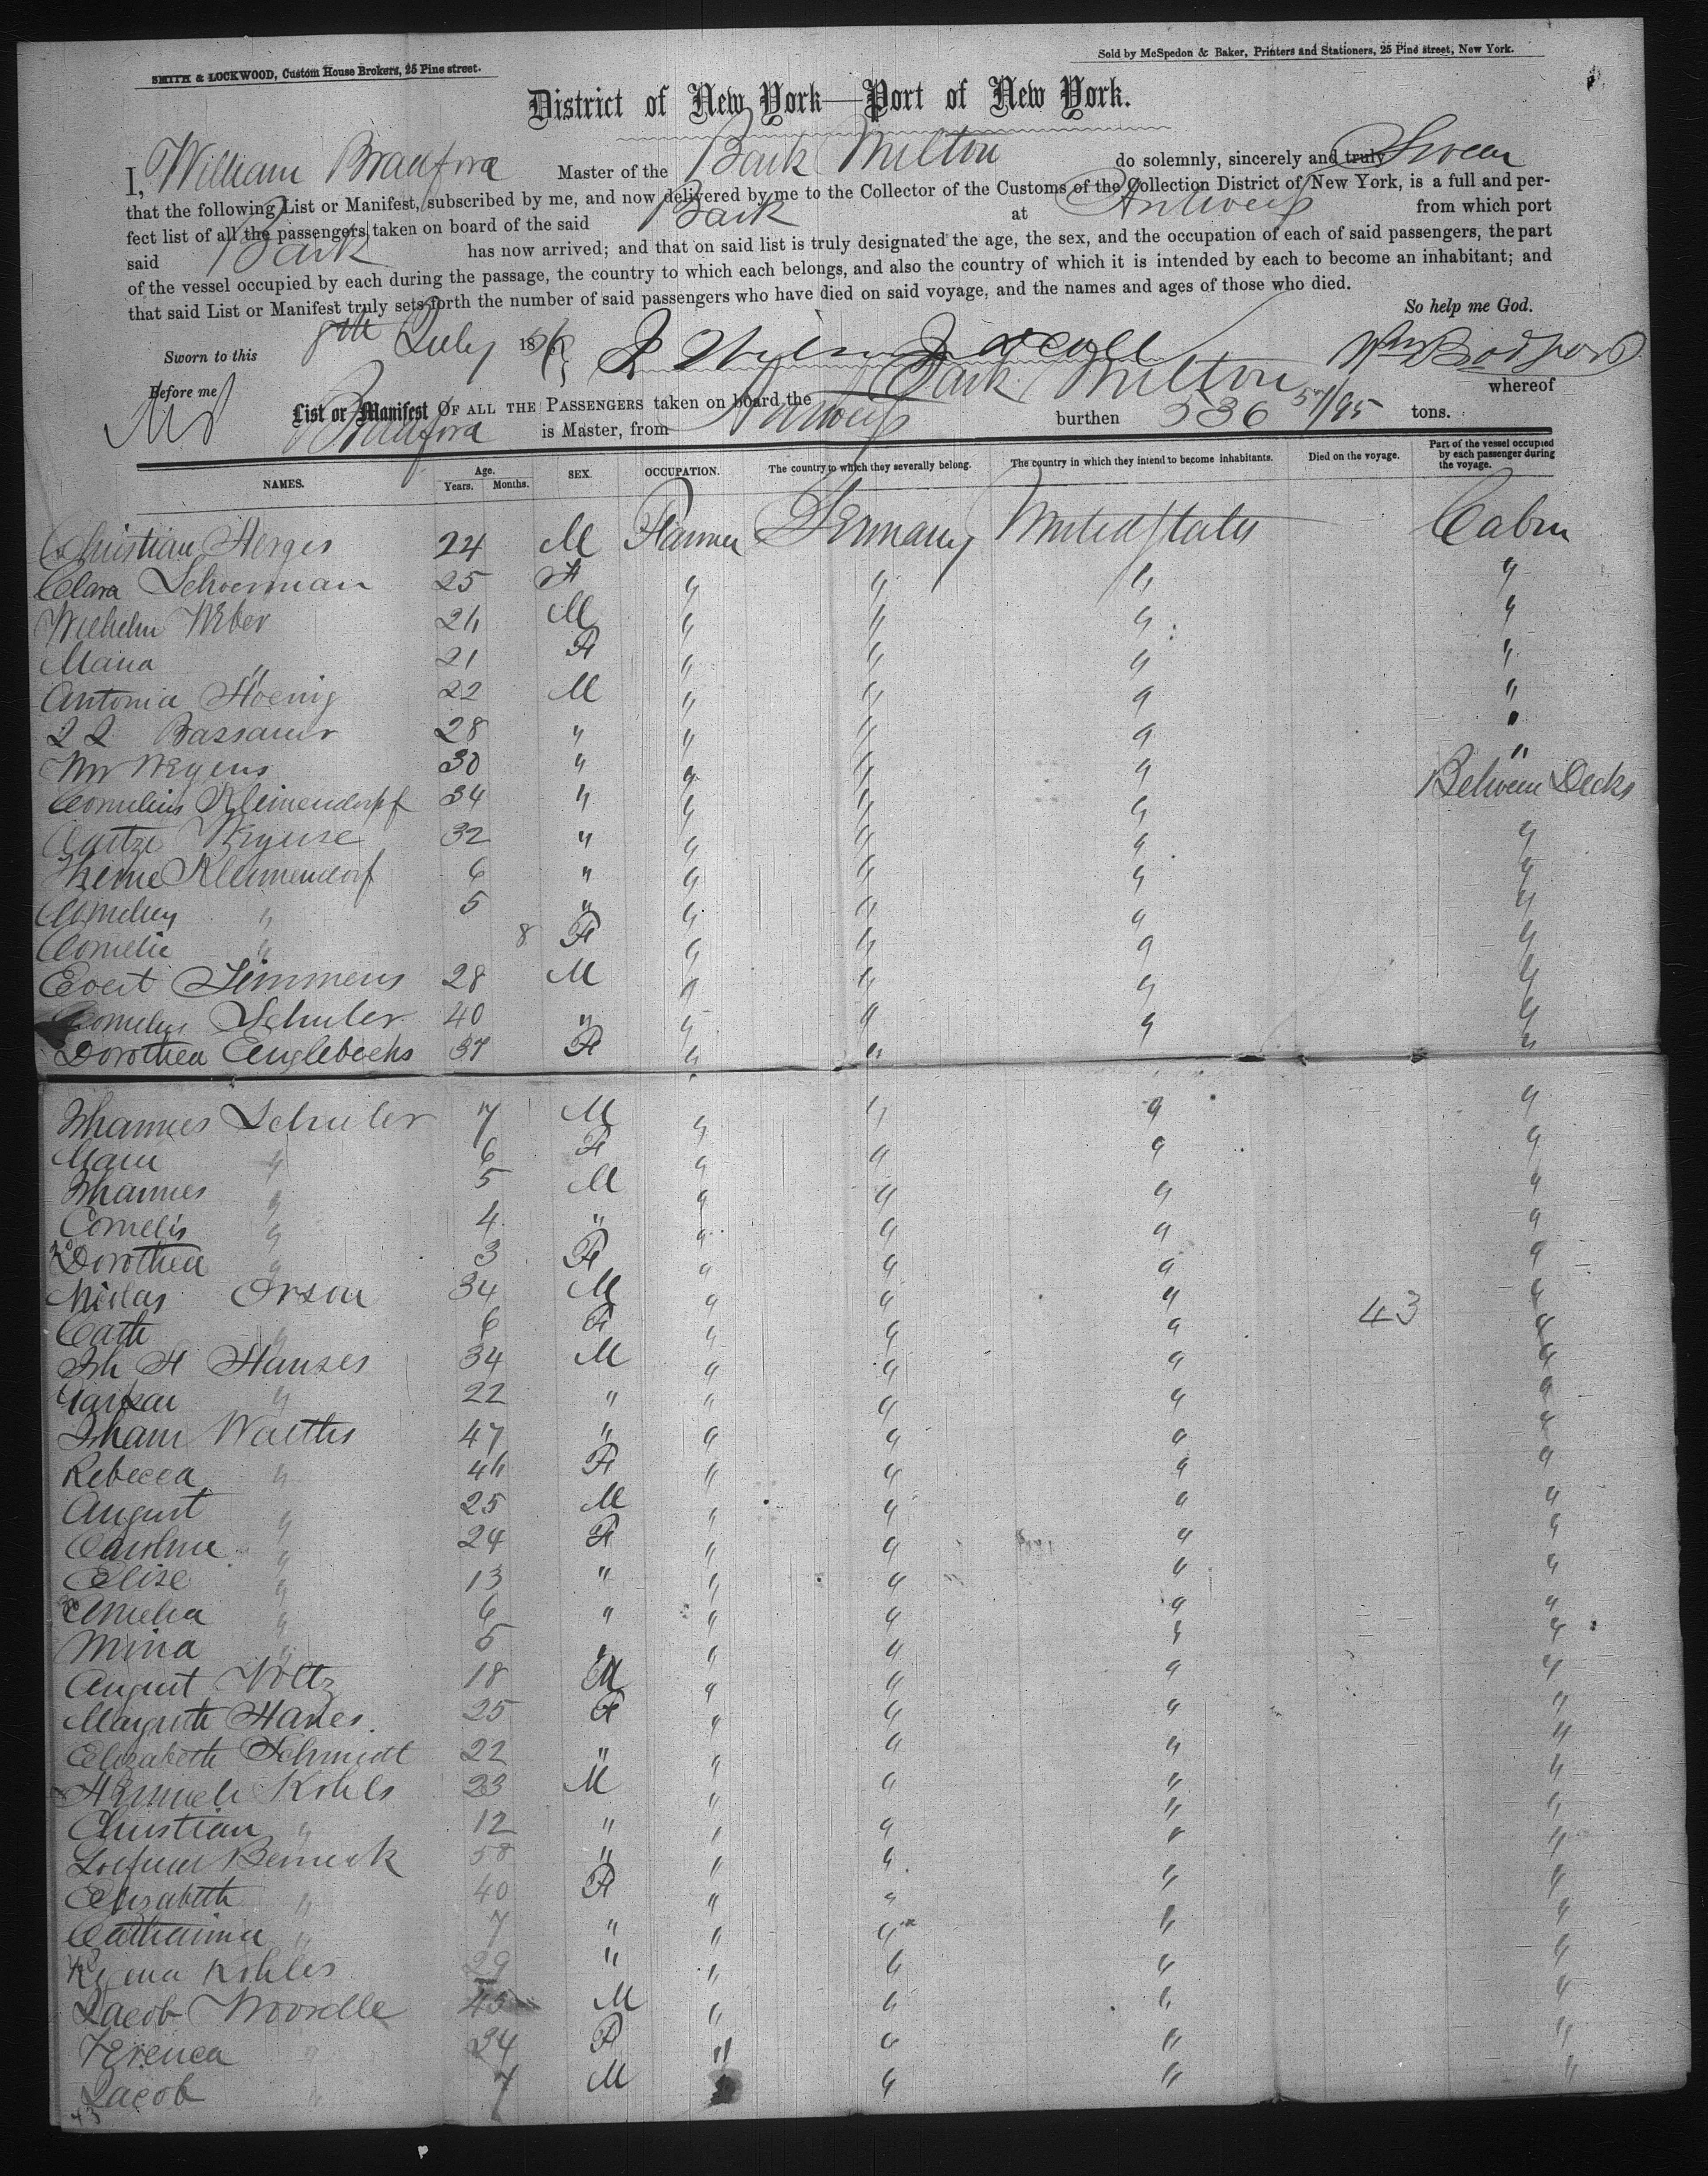 SMITH & LOCKWOOD, Custom House Brokers, 25 Pine street.
Sold by McSpedon & Baker, Printers and Stationers, 25 Pine street, New York.
District of New York—Port of New York.
I, William Bradford Master of the Bark Milton do solemnly, sincerely and truly Swear
that the following List or Manifest, subscribed by me, and now delivered by me to the Collector of the Customs of the Collection District of New York, is a full and per-
fect list of all the passengers taken on board of the said Bark at Antwerp from which port
said Bark has now arrived; and that on said list is truly designated the age, the sex, and the occupation of each of said passengers, the part
of the vessel occupied by each during the passage, the country to which each belongs, and also the country of which it is intended by each to become an inhabitant; and
that said List or Manifest truly sets forth the number of said passengers who have died on said voyage, and the names and ages of those who died.
So help me God.
Sworn to this 8th July 18
Before me
Wm Bradford
List or Manifest OF ALL THE PASSENGERS taken on board the Bark Milton whereof
Bradford is Master, from Antwerp burthen 536 57/95 tons.
NAMES. Age. Years. Months. SEX. OCCUPATION. The country to which they severally belong. The country in which they intend to become inhabitants. Died on the voyage. Part of the vessel occupied by each passenger during the voyage.
Christian Herges 24 M Farmer Germany United States Cabin
Clara Schoerman 25 F " " " "
Wilhelm Weber 24 M " " " "
Maria " 21 F " " " "
Antonia Hoenig 22 M " " " "
28 " " " " "
Wm Weyens 30 " " " " "
Cornelius Kleinendorpf 34 " " " " Between Decks
32 " " " " "
Kleinendorf 6 " " " " "
" 5 " " " " "
Cornelie " 8 F " " " "
Evert Simmens 28 M " " " "
Cornelius Schuler 40 " " " " "
Dorothea Euglebechs 37 F " " " "
Johannes Schuler 7 M " " " "
" 6 F " " " "
Johannes " 5 M " " " "
Cornelis " 4 " " " " "
20 Dorothea " 3 F " " " "
Orson 34 M " " " "
Cath " 6 F " " " 43 "
Joh H Hanses 34 M " " " "
" 22 " " " " "
Johann Walthis 47 " " " " "
Rebecca " 44 F " " " "
August " 25 M " " " "
Caroline " 24 F " " " "
Elise " 13 " " " " "
30 Amelia " 6 " " " " "
Mina " 5 " " " " "
August Voltz 18 M " " " "
Margreth Hanes 25 F " " " "
Elizabeth Schmidt 22 " " " " "
Kohls 23 M " " " "
Christian " 12 " " " " "
58 " " " " "
Elizabeth " 40 F " " " "
Catharina " 7 " " " " "
40 Kohles 29 " " " " "
Jacob 45 M " " " "
" 34 F " " " "
Jacob " 7 M " " " "
43